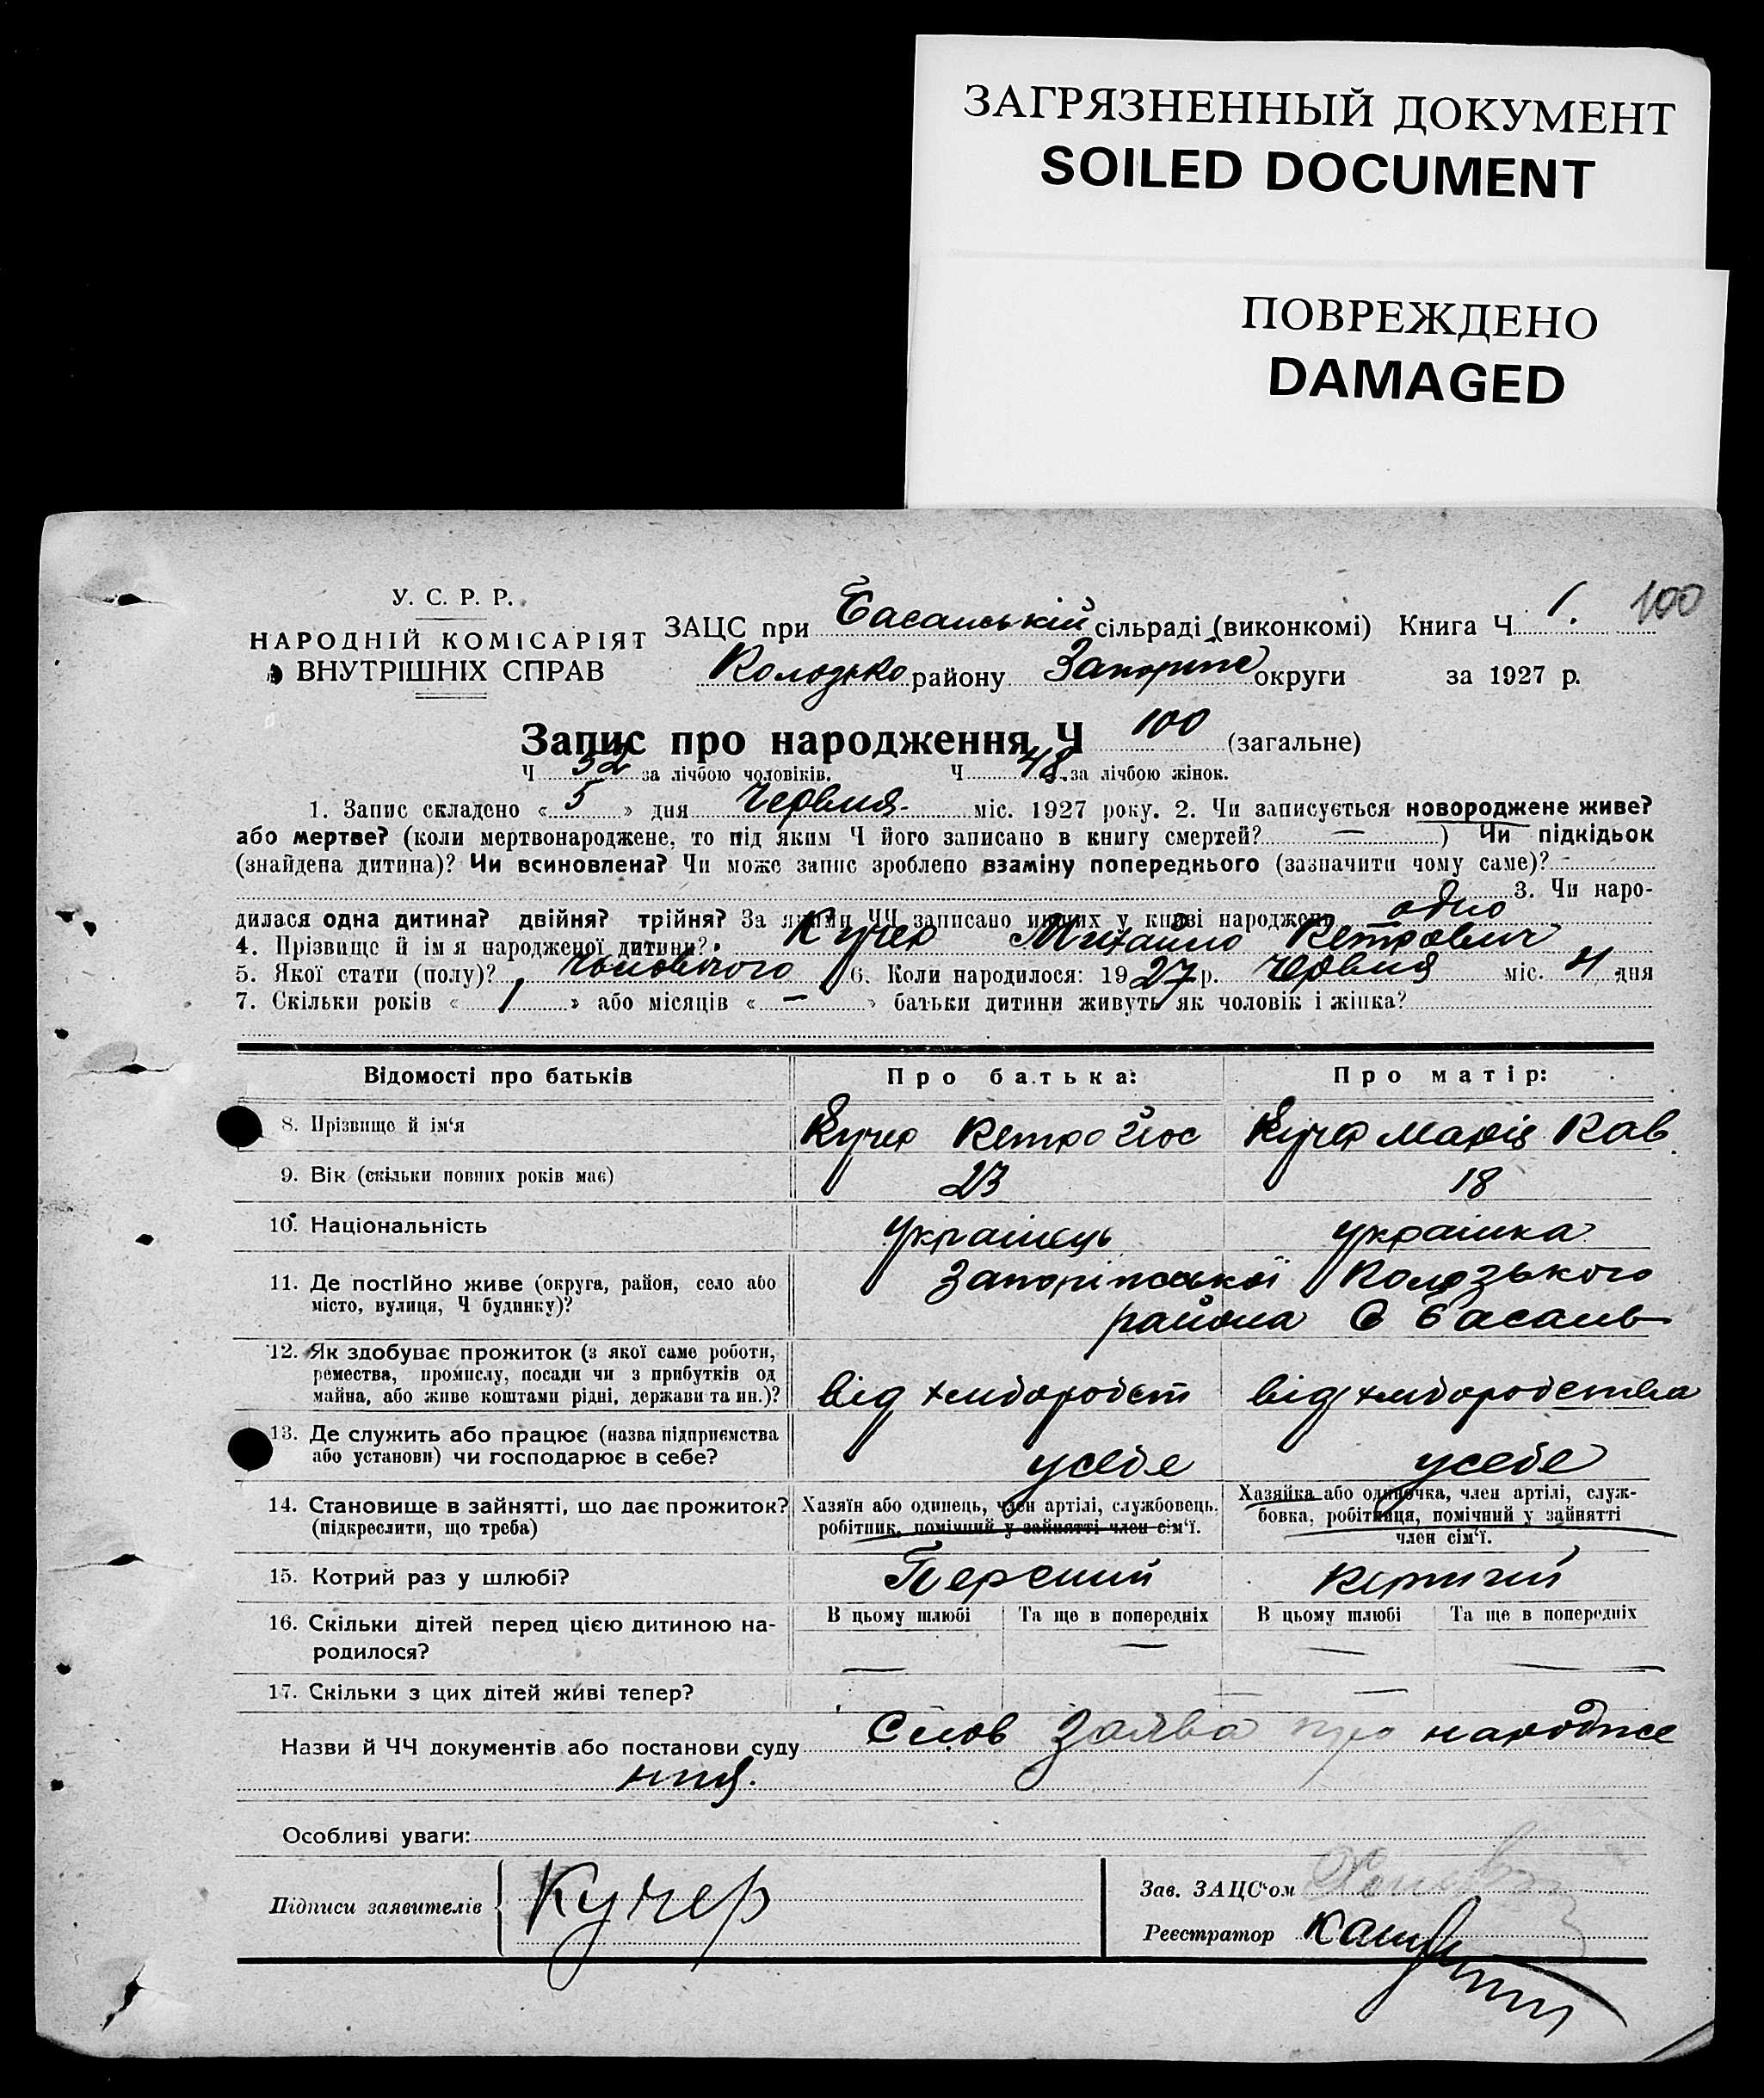 ЗАГРЯЗНЕННЫЙ ДОКУМЕНТ
SOILED DOCUMENT
ПОВРЕЖДЕНО
DAMAGED
У. С. Р. Р.
НАРОДНІЙ КОМІСАРІЯТ
ВНУТРІШНІХ СПРАВ
ЗАЦС при Басанській сільраді (виконкомі) Книга Ч 1. 100
Колозько району Запоріж округи за 1927 р.
Запис про народження Ч 100 (загальне)
Ч 52 за лічбою чоловіків. Ч 48 за лічбою жінок.
1. Запис складено « 5 » дня Червня міс. 1927 року. 2. Чи записується новороджене живе?
або мертве? (коли мертвонароджене, то під яким Ч його записано в книгу смертей? — ) Чи підкідьок
(знайдена дитина)? Чи всиновлена? Чи може запис зроблено взаміну попереднього (зазначити чому саме)? -
3. Чи наро-
дилася одна дитина? двійня? трійня? За якими ЧЧ записано инших у книзі народжень одно
4. Прізвище й ім я народженої дитини? Кучер Михайло Петрович
5. Якої стати (полу)? чоловічого 6. Коли народилося: 1927 р. Червня міс. 4 дня
7. Скільки років « 1 » або місяців « — » батьки дитини живуть як чоловік і жінка?
Відомості про батьків Про батька: Про матір:
8. Прізвище й ім‘я Кучер Петро Йос Кучер Марія Пав
9. Вік (скільки повних років має) 23 18
10. Національність Українець українка
11. Де постійно живе (округа, район, село або Запоріжської Колозького
місто, вулиця, Ч будинку)? района С Басань
12. Як здобуває прожиток (з якої саме роботи,
ремества, промислу, посади чи з прибутків од
майна, або живе коштами рідні, держави та ин.)? від хліборобст від хліборобства
13. Де служить або працює (назва підприємства
або установи) чи господарює в себе? усебе усебе
14. Становище в зайнятті, що дає прожиток? Хазяїн або одинець, член артілі, службовець, Хазяйка або одиночка, член артілі, служ-
(підкреслити, що треба) робітник, помічний у зайнятті член сім‘ї. бовка, робітниця, помічний у зайнятті
член сім‘ї.
15. Котрий раз у шлюбі? Перший
16. Скільки дітей перед цією дитиною на- В цьому шлюбі Та ще в попередніх В цьому шлюбі Та ще в попередніх
родилося? — — — —
17. Скільки з цих дітей живі тепер? — —
Назви й ЧЧ документів або постанови суду Слов Заява про народже
ння.
Особливі уваги:
Підписи заявителів Кучер
Зав. ЗАЦС‘ом
Реєстратор